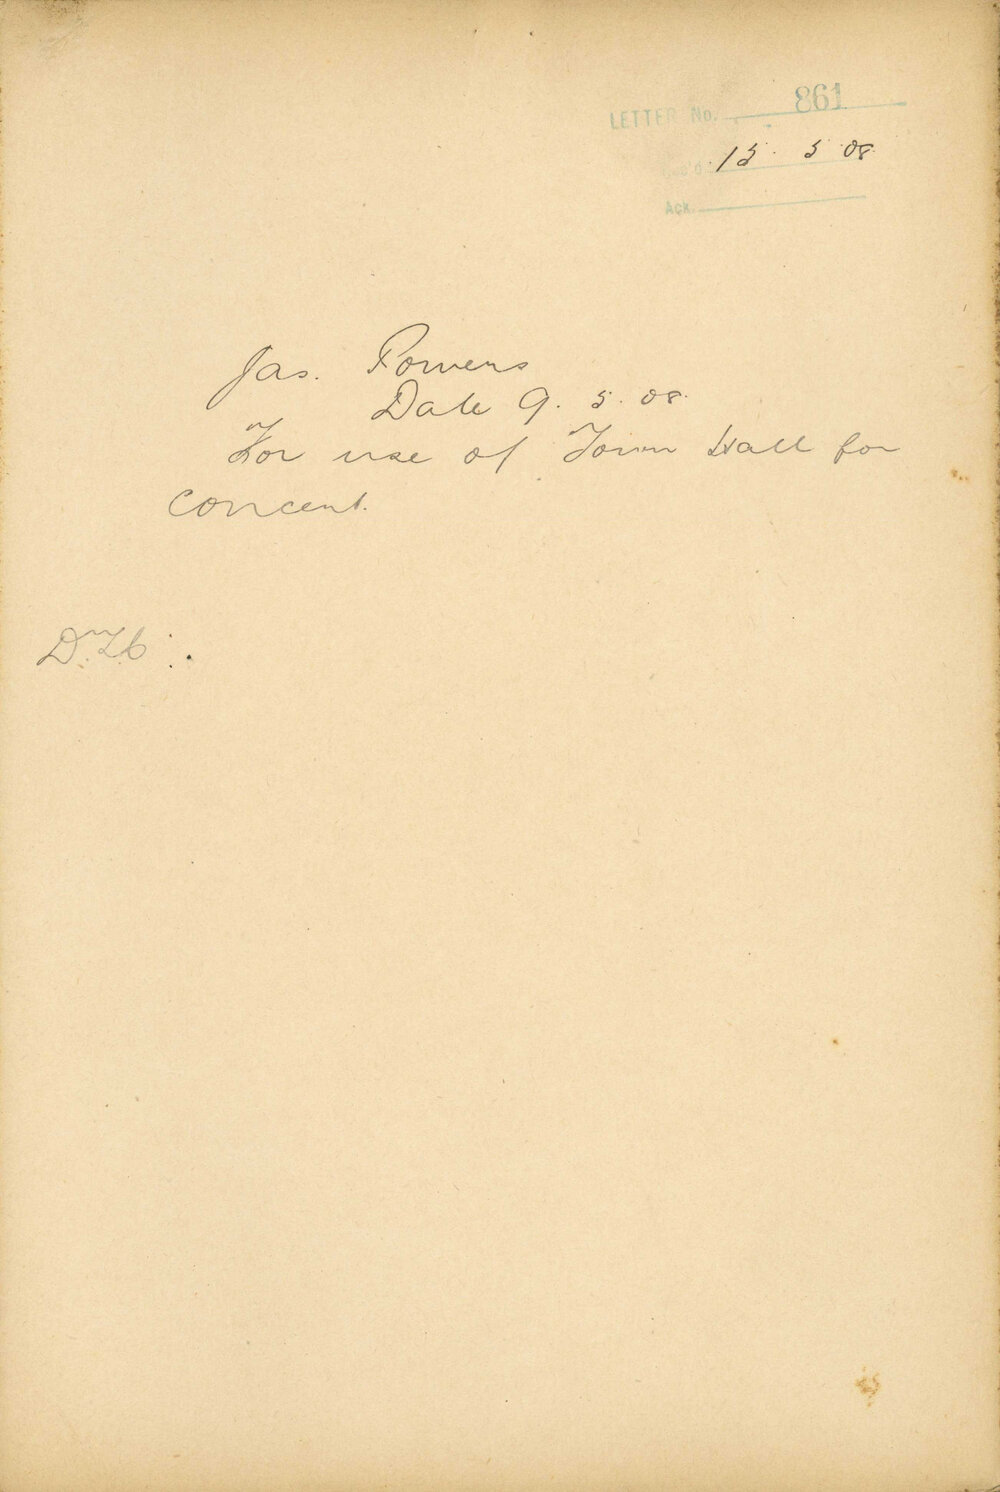 LETTER No. 861
Rec'd. 15. 5. 08.
Ack.
Jas. Powers
Date 9. 5. 08.
For use of Town Hall for
concert.